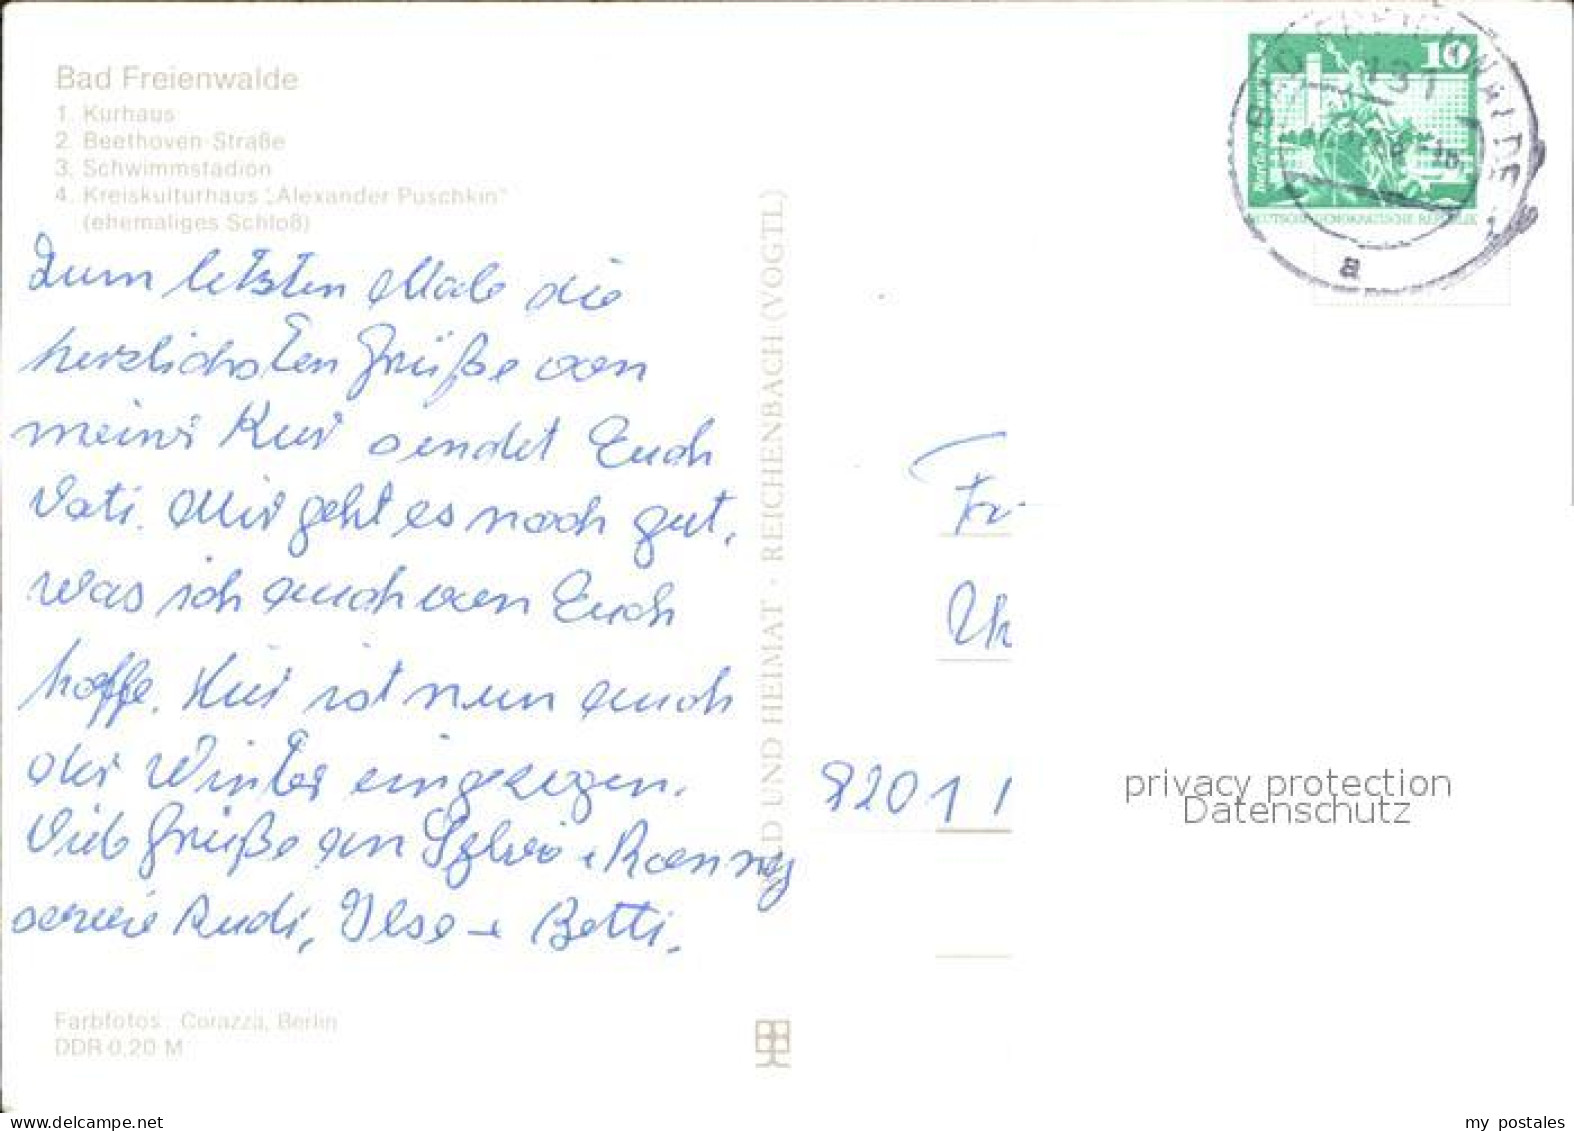 Bad Freienwalde
1. Kurhaus
2. Beethoven-Straße
3. Schwimmstadion
4. Kreiskulturhaus „Alexander Puschkin“
(ehemaliges Schloß)
Zum letzten Male die
herzlichsten Grüße von
meiner Kur sendet Euch
Vati. Mir geht es noch gut,
was ich auch von Euch
hoffe. Hier ist nun auch
der Winter eingezogen.
Viele Grüße an Sylvio + Ronny
sowie Rudi, Ilse + Betti.
Farbfotos: Corazza, Berlin
DDR 0,20 M
BILD UND HEIMAT · REICHENBACH (VOGTL)
10
DEUTSCHE DEMOKRATISCHE REPUBLIK
BAD FREIENWALDE 1
131
a
8201
privacy protection
Datenschutz
www.delcampe.net
my_postales